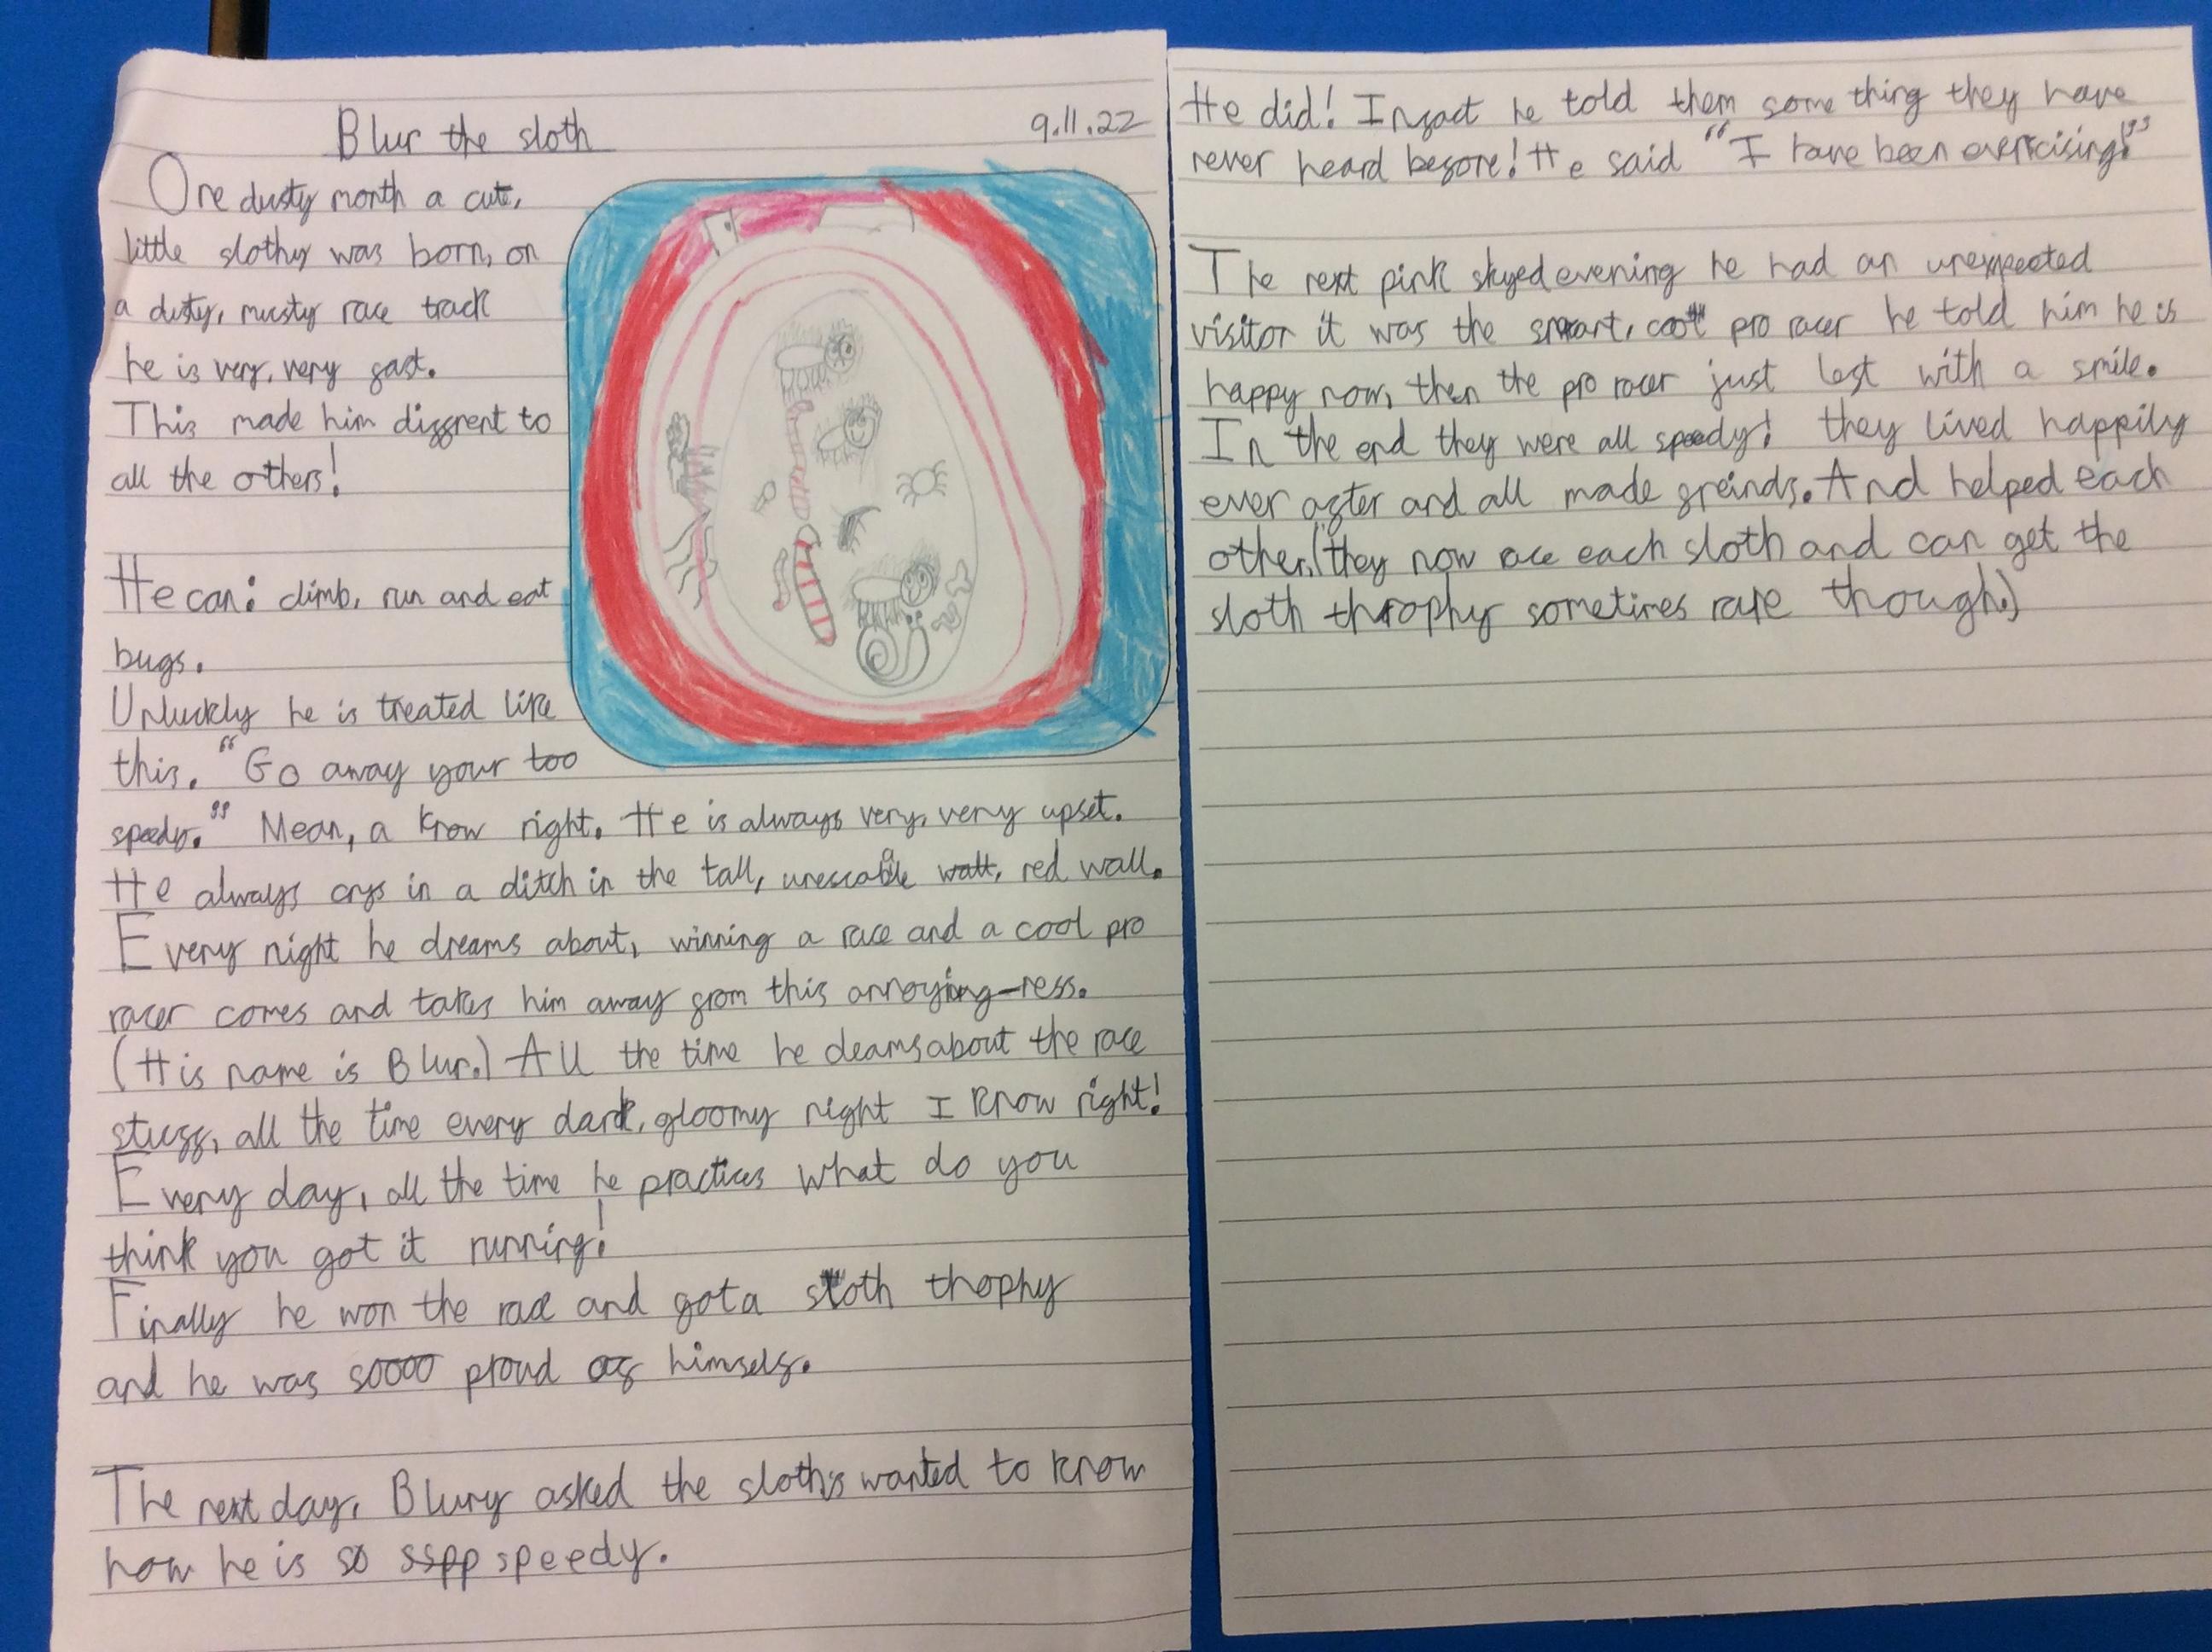 Blur the sloth
9.11.22
One dusty month a cute,
little slothy was born, on
a dusty, musty race track
he is very, very fast.
This made him diffrent to
all the others!
He can: climb, run and eat
bugs.
Unluckly he is treated like
this. "Go away your too
speedy." Mean, a know right. He is always very, very upset.
He always crys in a ditch in the tall, unescable wall, red wall.
Every night he dreams about, winning a race and a cool pro
racer comes and takes him away from this annoying-ness.
(His name is Blur.) All the time he deams about the race
stuff, all the time every dark, gloomy night I know right!
Every day, all the time he practices what do you
think you got it running!
Finally he won the race and got a sloth thophy
and he was soooo proud of himself.
The next day, Blury asked the sloths wanted to know
how he is so sspp speedy.
He did! Infact he told them some thing they have
never heard before! He said "I have been exericising!"
The next pink skyed evening he had an unexpected
visitor it was the smart, cool pro racer he told him he is
happy now, then the pro racer just left with a smile.
In the end they were all speedy! they lived happily
ever after and all made freinds. And helped each
other. (they now race each sloth and can get the
sloth throphy sometimes rare though.)